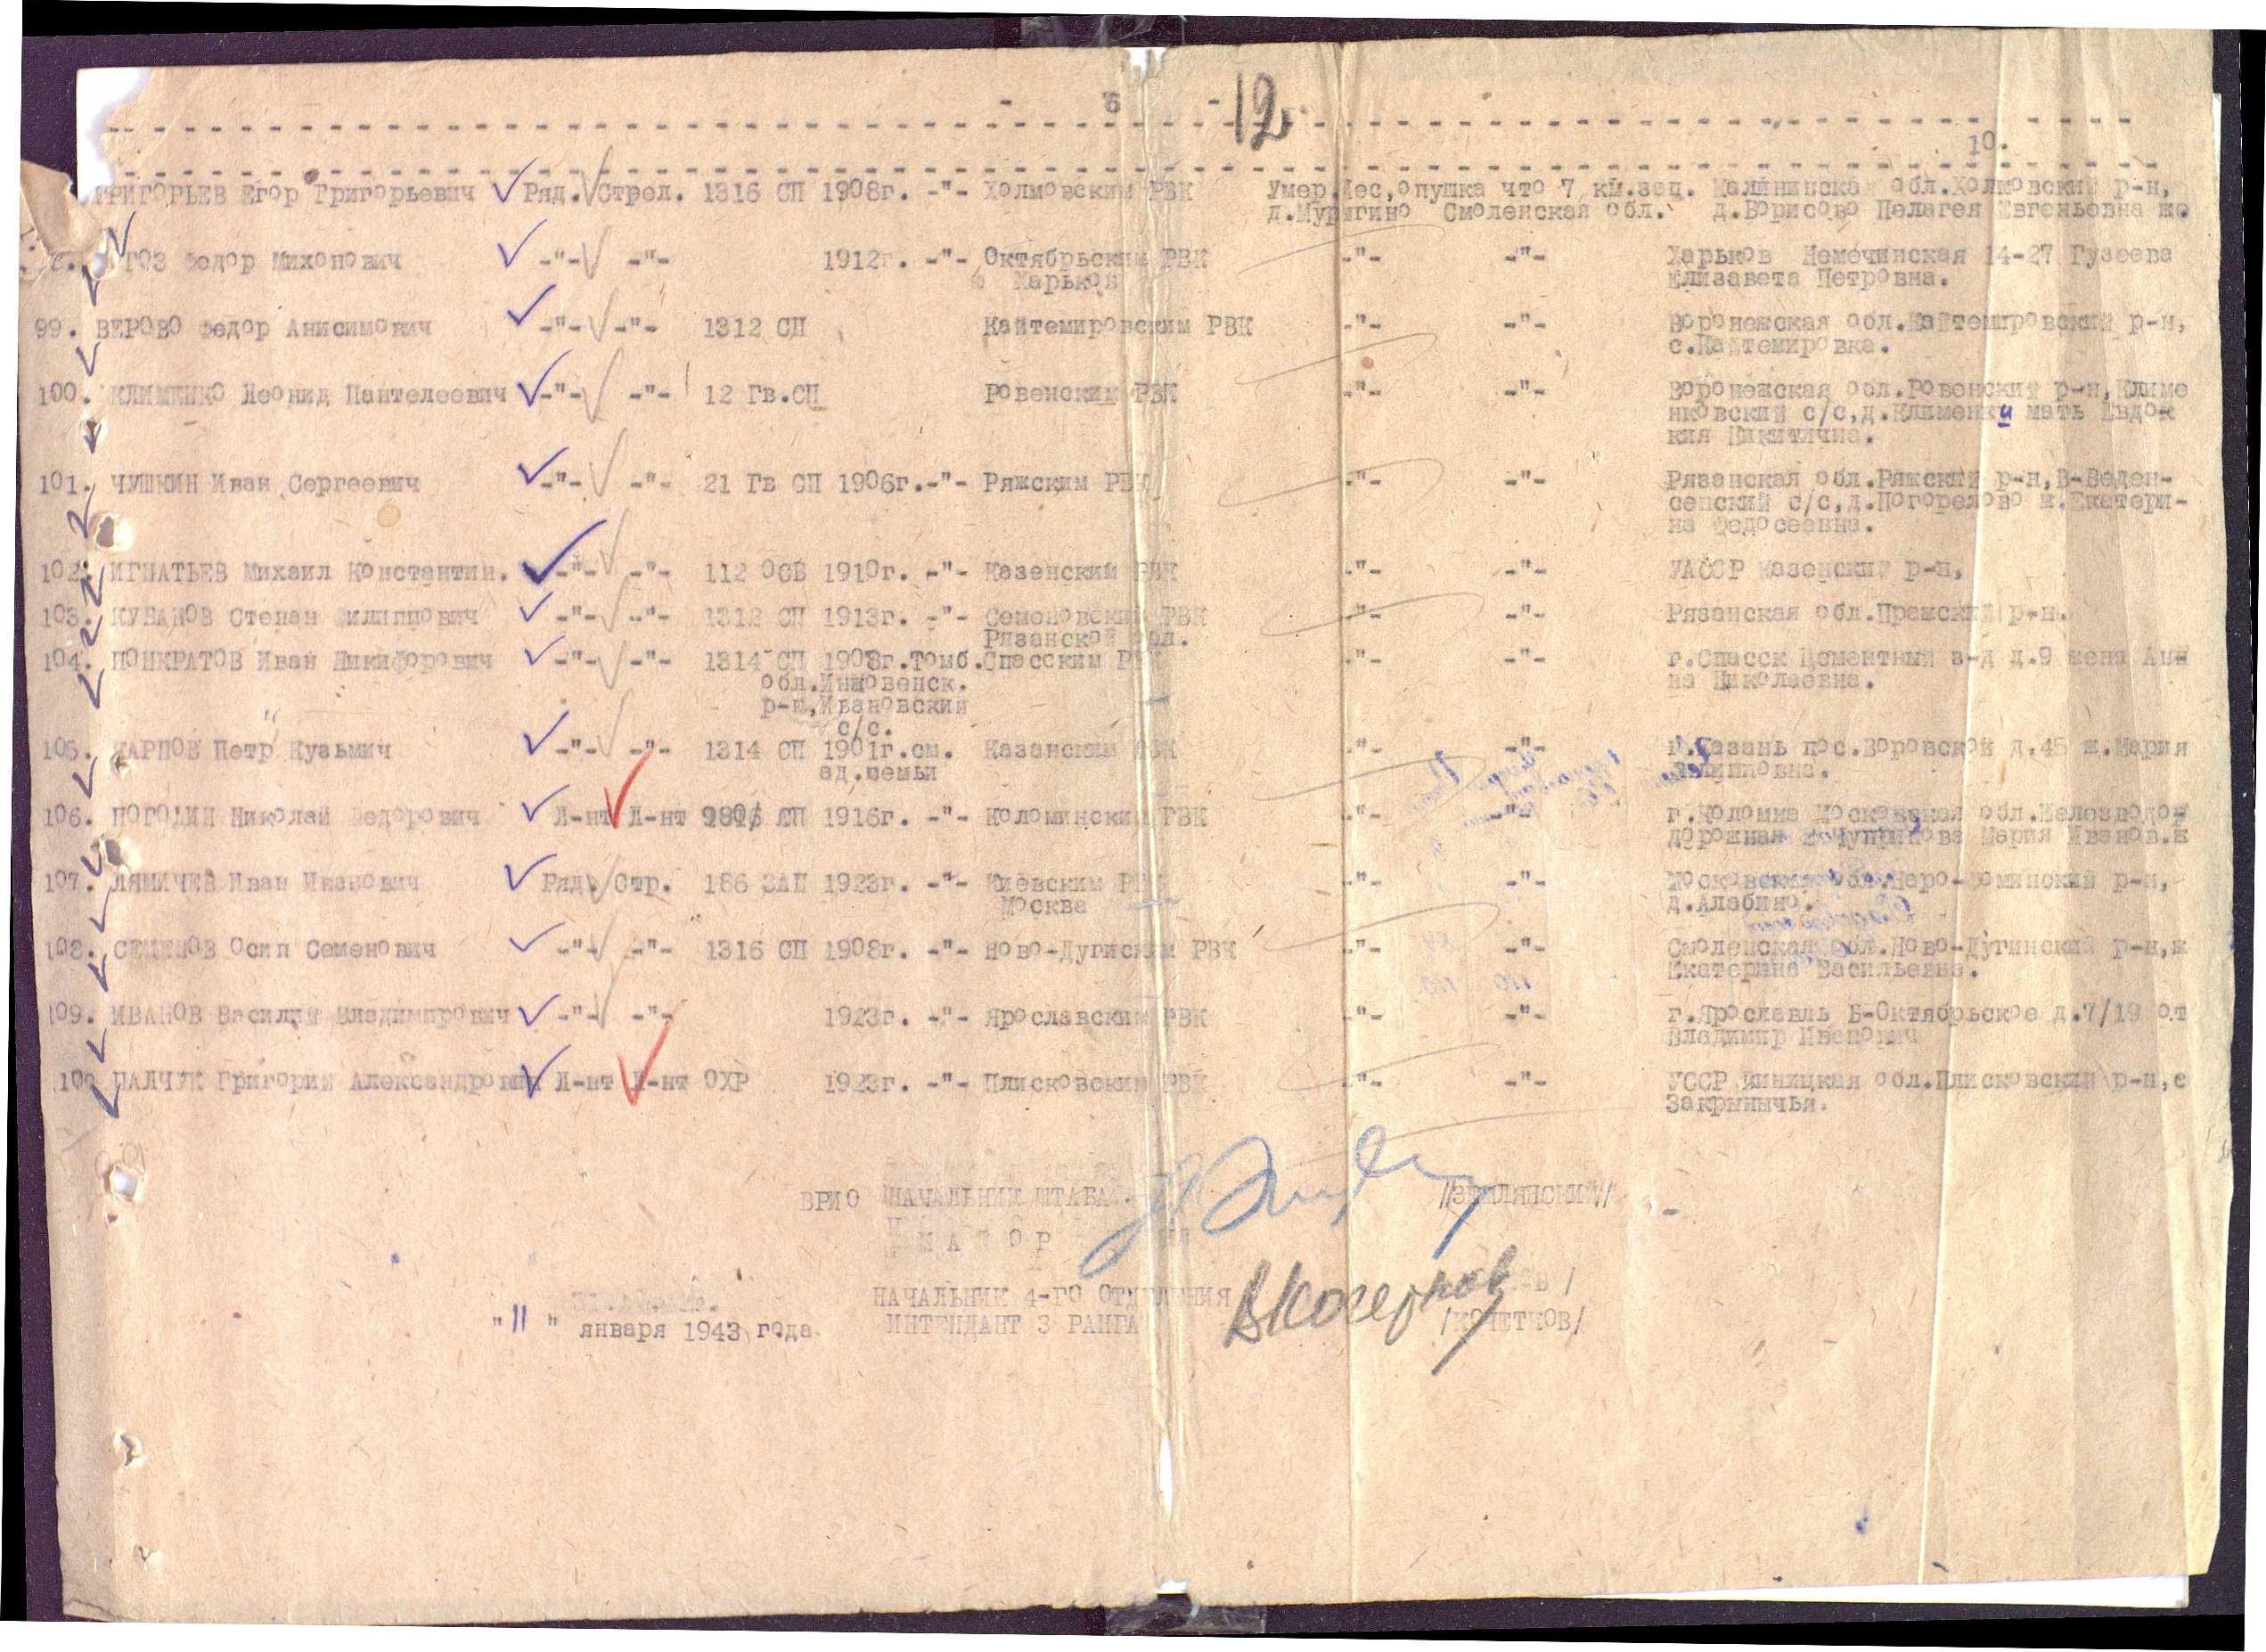 - 6 -
12
10.
ГРИГОРЬЕВ Егор Григорьевич Ряд. Стрел. 1316 СП 1908г. -"- Холмовским РВК Умер.Лес,опушка что 7 км.зап. Калининска обл.Холмовский р-н,
д.Мурягино Смоленская обл. д.Борисово Пелагея Евгеньевна же
Федор -"- -"- 1912г. -"- Октябрьским РВК -"- -"- Харьков Немечинская 14-27 Гузеева
Харьков Елизавета Петровна.
99. ВЕРОВО Федор Анисимович -"- -"- 1312 СП Кайтемировским РВК -"- -"- Воронежская обл.Кайтемировский р-н,
с.Кайтемировка.
100. КЛИМЕНКО Леонид Пантелеевич -"- -"- 12 Гв.СП Ровенским РВК -"- -"- Воронежская обл.Ровенский р-н,Климе
нковский с/с,д.Клименки мать Евдок
кия Никитична.
101. ЧУШКИН Иван Сергеевич -"- -"- 21 Гв СП 1906г.-"- Ряжским РВК -"- -"- Рязанская обл.Ряжский р-н,В-Веден-
сепский с/с,д.Погорелово ж.Екатери-
на Федосеевна.
102. ИГНАТЬЕВ Михаил Константин. -"- -"- 112 ОСБ 1910г. -"- Казенским РВК -"- -"- УАССР Казенский р-н,
103. КУБАНОВ Степан Филиппович -"- -"- 1312 СП 1913г. -"- Семеновским РВК -"- -"- Рязанская обл.Пражский р-н.
Рязанской обл.
104. ПОНКРАТОВ Иван Никифорович -"- -"- 1314 СП 1908г.Томб.Спасским РВК -"- -"- г.Спасск Цементный з-д д.9 жена Анн
обл.Инжовенск. на Николаевна.
р-н,Ивановский
с/с.
105. КАРПОВ Петр Кузьмич -"- -"- 1314 СП 1901г.см. Казанским РВК -"- -"- г.Казань пос.Воровской д.45 ж.Мария
ад.семьи Филипповна.
106. ПОГОДИН Николай Федорович Л-нт Л-нт СП 1916г. -"- Коломинским РВК -"- -"- г.Коломна Московская обл.Железнодор
дорожная Чуприкова Мария Иванов.
107. ЛЯМИЧЕВ Иван Иванович Ряд. Стр. 186 ЗАП 1923г. -"- Киевским РВК -"- -"- Московская обл.Наро-Фоминский р-н,
Москва д.Алабино.
108. СЕМЕНОВ Осип Семенович -"- -"- 1316 СП 1908г. -"- Ново-Дугиским РВК -"- -"- Смоленская обл.Ново-Дугинский р-н,ж
Екатерина Васильевна.
109. ИВАНОВ Василий Владимирович -"- -"- 1923г. -"- Ярославским РВК -"- -"- г.Ярославль Б-Октябрьское д.7/19 от
Владимир Иванович
100 ПАЛЧУК Григорий Александрович Л-нт Л-нт ОХР 1923г. -"- Плисковским РВК -"- -"- УССР Виницкая обл.Плисковский р-н,с
Закрынычья.
ВРИО НАЧАЛЬНИК ШТАБА. //ЗЕМЛЯНСКИЙ//
МАЙОР
НАЧАЛЬНИК 4-ГО ОТДЕЛЕНИЯ
"11" января 1943 года. ИНТЕНДАНТ 3 РАНГА /КОЧЕТКОВ/